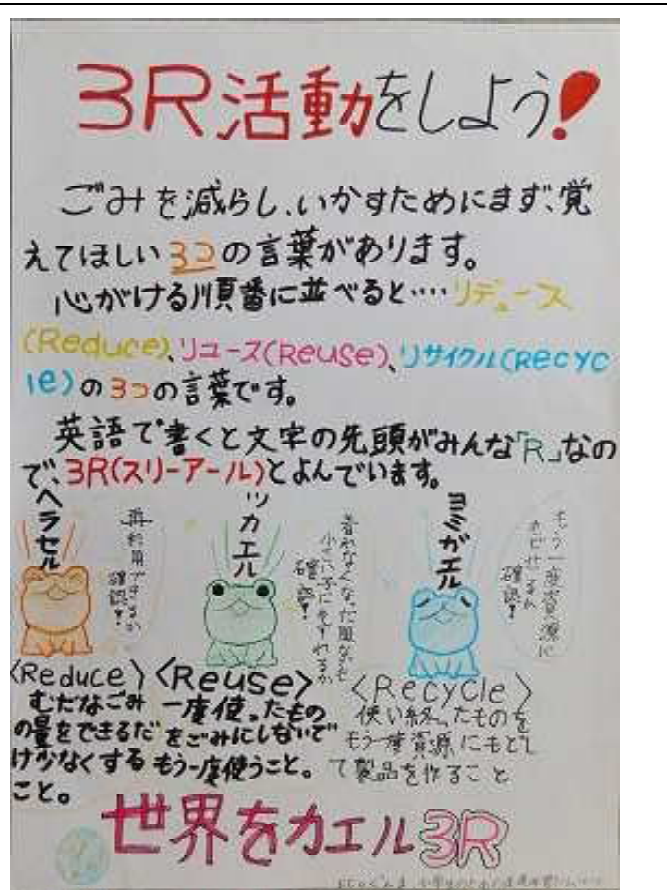 3R活動をしよう!
ごみを減らし、いかすためにまず、覚
えてほしい3つの言葉があります。
心がける順番に並べると‥‥リデュース
(Reduce)、リユース(Reuse)、リサイクル(Recyc
le)の3つの言葉です。
英語で書くと文字の先頭がみんな「R」なの
で、3R(スリーアール)とよんでいます。
ヘラセル
再利用できるか
確認!
ツカエル
着れなくなった服などを
小さい子にゆずれるか
確認!
ヨミガエル
もう一度資源に
もどせるか
確認!
〈Reduce〉
むだなごみ
の量をできるだ
け少なくする
こと。
〈Reuse〉
一度使ったもの
をごみにしないで
もう一度使うこと。
〈Recycle〉
使い終ったものを
もう一度資源にもどし
て製品を作ること
世界をカエル3R